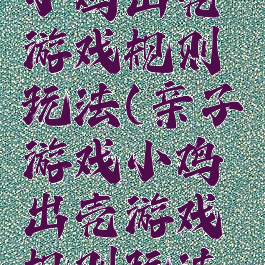 小鸡出壳
游戏规则
玩法(亲子
游戏小鸡
出壳游戏
规则玩法